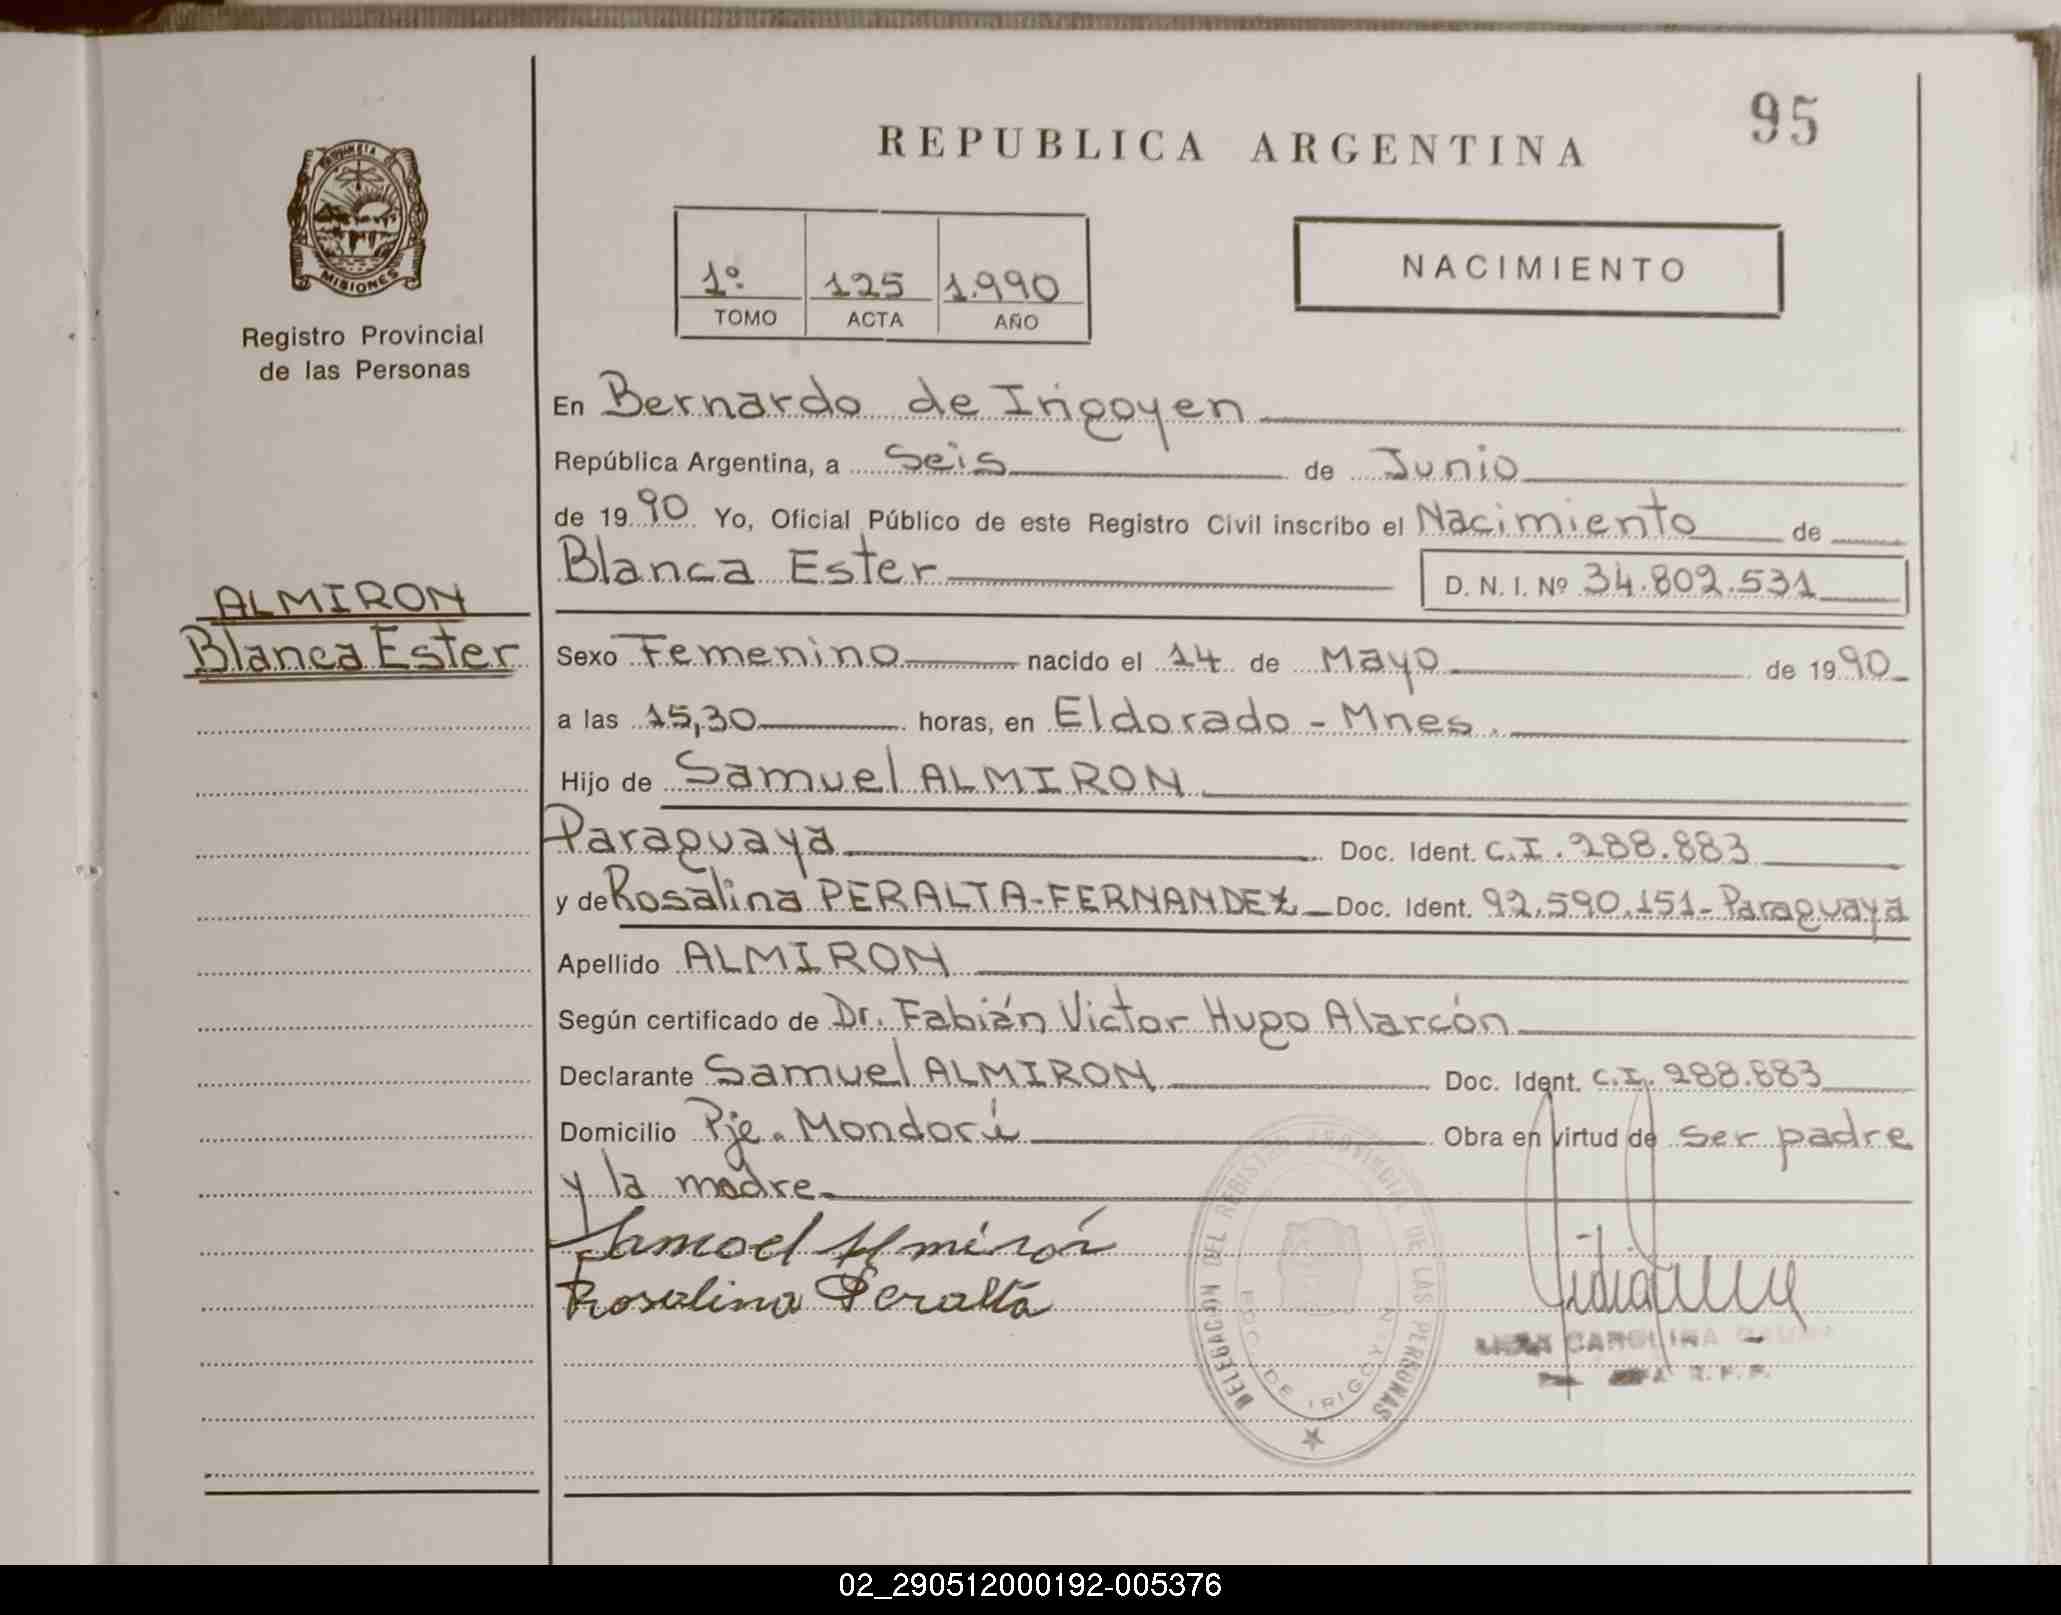 95
REPUBLICA ARGENTINA
PROVINCIA
MISIONES
Registro Provincial
de las Personas
1º 125 1.990
TOMO ACTA AÑO
NACIMIENTO
En Bernardo de Irigoyen
República Argentina, a Seis de Junio
de 1990 Yo, Oficial Público de este Registro Civil inscribo el Nacimiento de
Blanca Ester D. N. I. Nº 34.802.531
ALMIRON
Blanca Ester
Sexo Femenino nacido el 14 de Mayo de 1990
a las 15,30 horas, en Eldorado - Mnes.
Hijo de Samuel ALMIRON
Paraguaya Doc. Ident. C.I. 288.883
y de Rosalina PERALTA-FERNANDEZ Doc. Ident. 92.590.151- Paraguaya
Apellido ALMIRON
Según certificado de Dr. Fabián Victor Hugo Alarcón
Declarante Samuel ALMIRON Doc. Ident. C.I. 288.883
Domicilio Pje. Mondorí Obra en virtud de ser padre
y la madre
Samoel Almirón
Rosalina Peralta
DELEGACION DEL REGISTRO PROVINCIAL DE LAS PERSONAS
BDO. DE IRIGOYEN
CAROLINA
R. P. P.
02_290512000192-005376